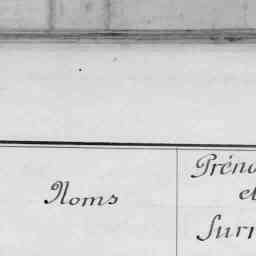 Noms
Préno
et
Surn